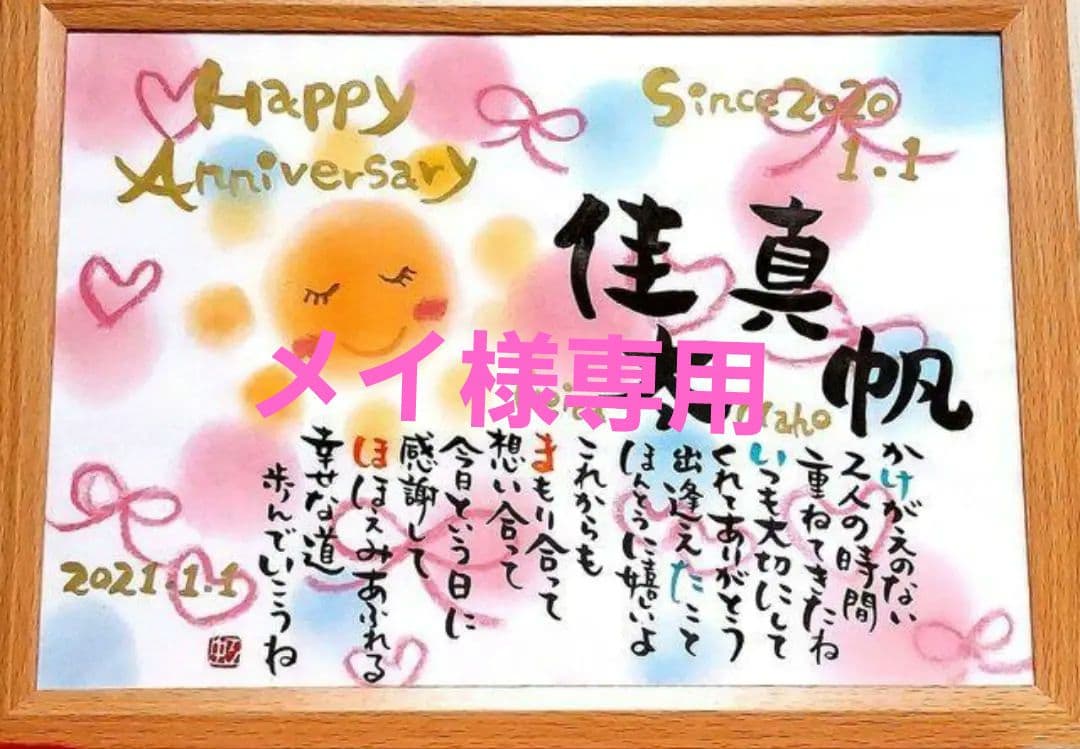 Happy
Anniversary
Since2020
1.1
佳
真帆
メイ様専用
aho
かけがえのない
2人の時間
重ねてきたね
いつも大切にして
くれてありがとう
出逢えたこと
ほんとうに嬉しいよ
これからも
まもり合って
想い合って
今日という日に
感謝して
ほほえみあふれる
幸せな道
歩んでいこうね
2021.1.1